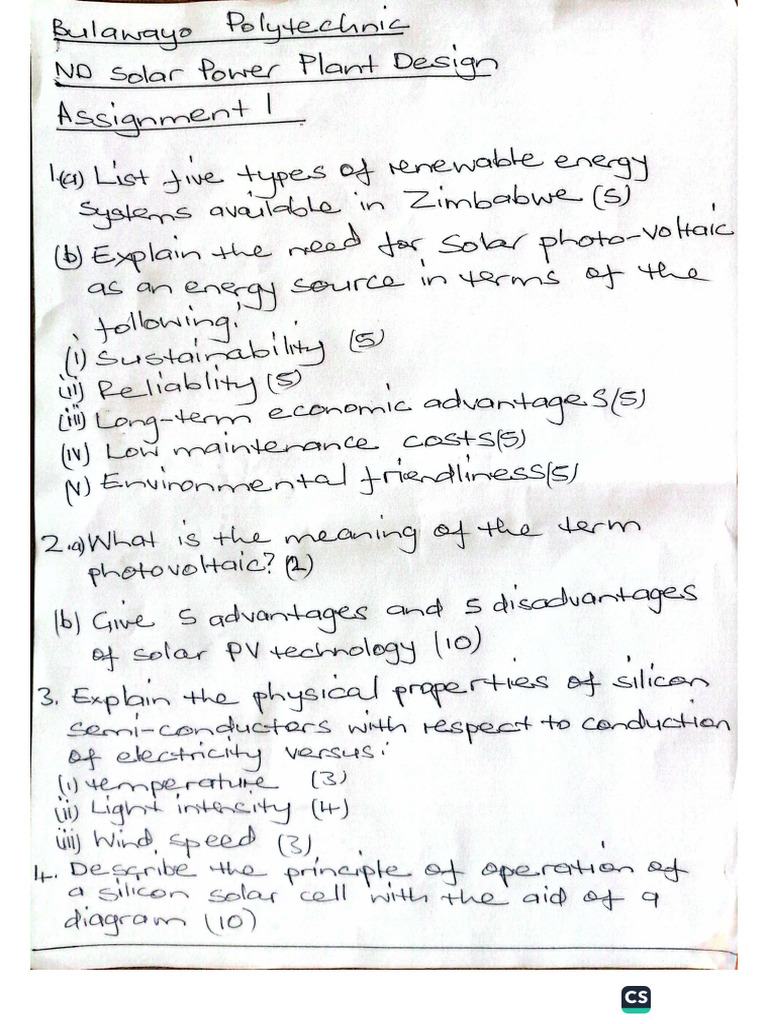 Bulawayo Polytechnic
ND Solar Power Plant Design
Assignment 1
1.(a) List five types of renewable energy
systems available in Zimbabwe (5)
(b) Explain the need for Solar photo-voltaic
as an energy source in terms of the
following:
(i) Sustainability (5)
(ii) Reliablity (5)
(iii) Long-term economic advantages (5)
(iv) Low maintenance costs (5)
(v) Environmental friendliness (5)
2.a) What is the meaning of the term
photovoltaic? (2)
(b) Give 5 advantages and 5 disadvantages
of solar PV technology (10)
3. Explain the physical properties of silicon
semi-conductors with respect to conduction
of electricity versus:
(i) temperature (3)
(ii) Light intensity (4)
(iii) Wind speed (3)
4. Describe the principle of operation of
a silicon solar cell with the aid of a
diagram (10)
CS